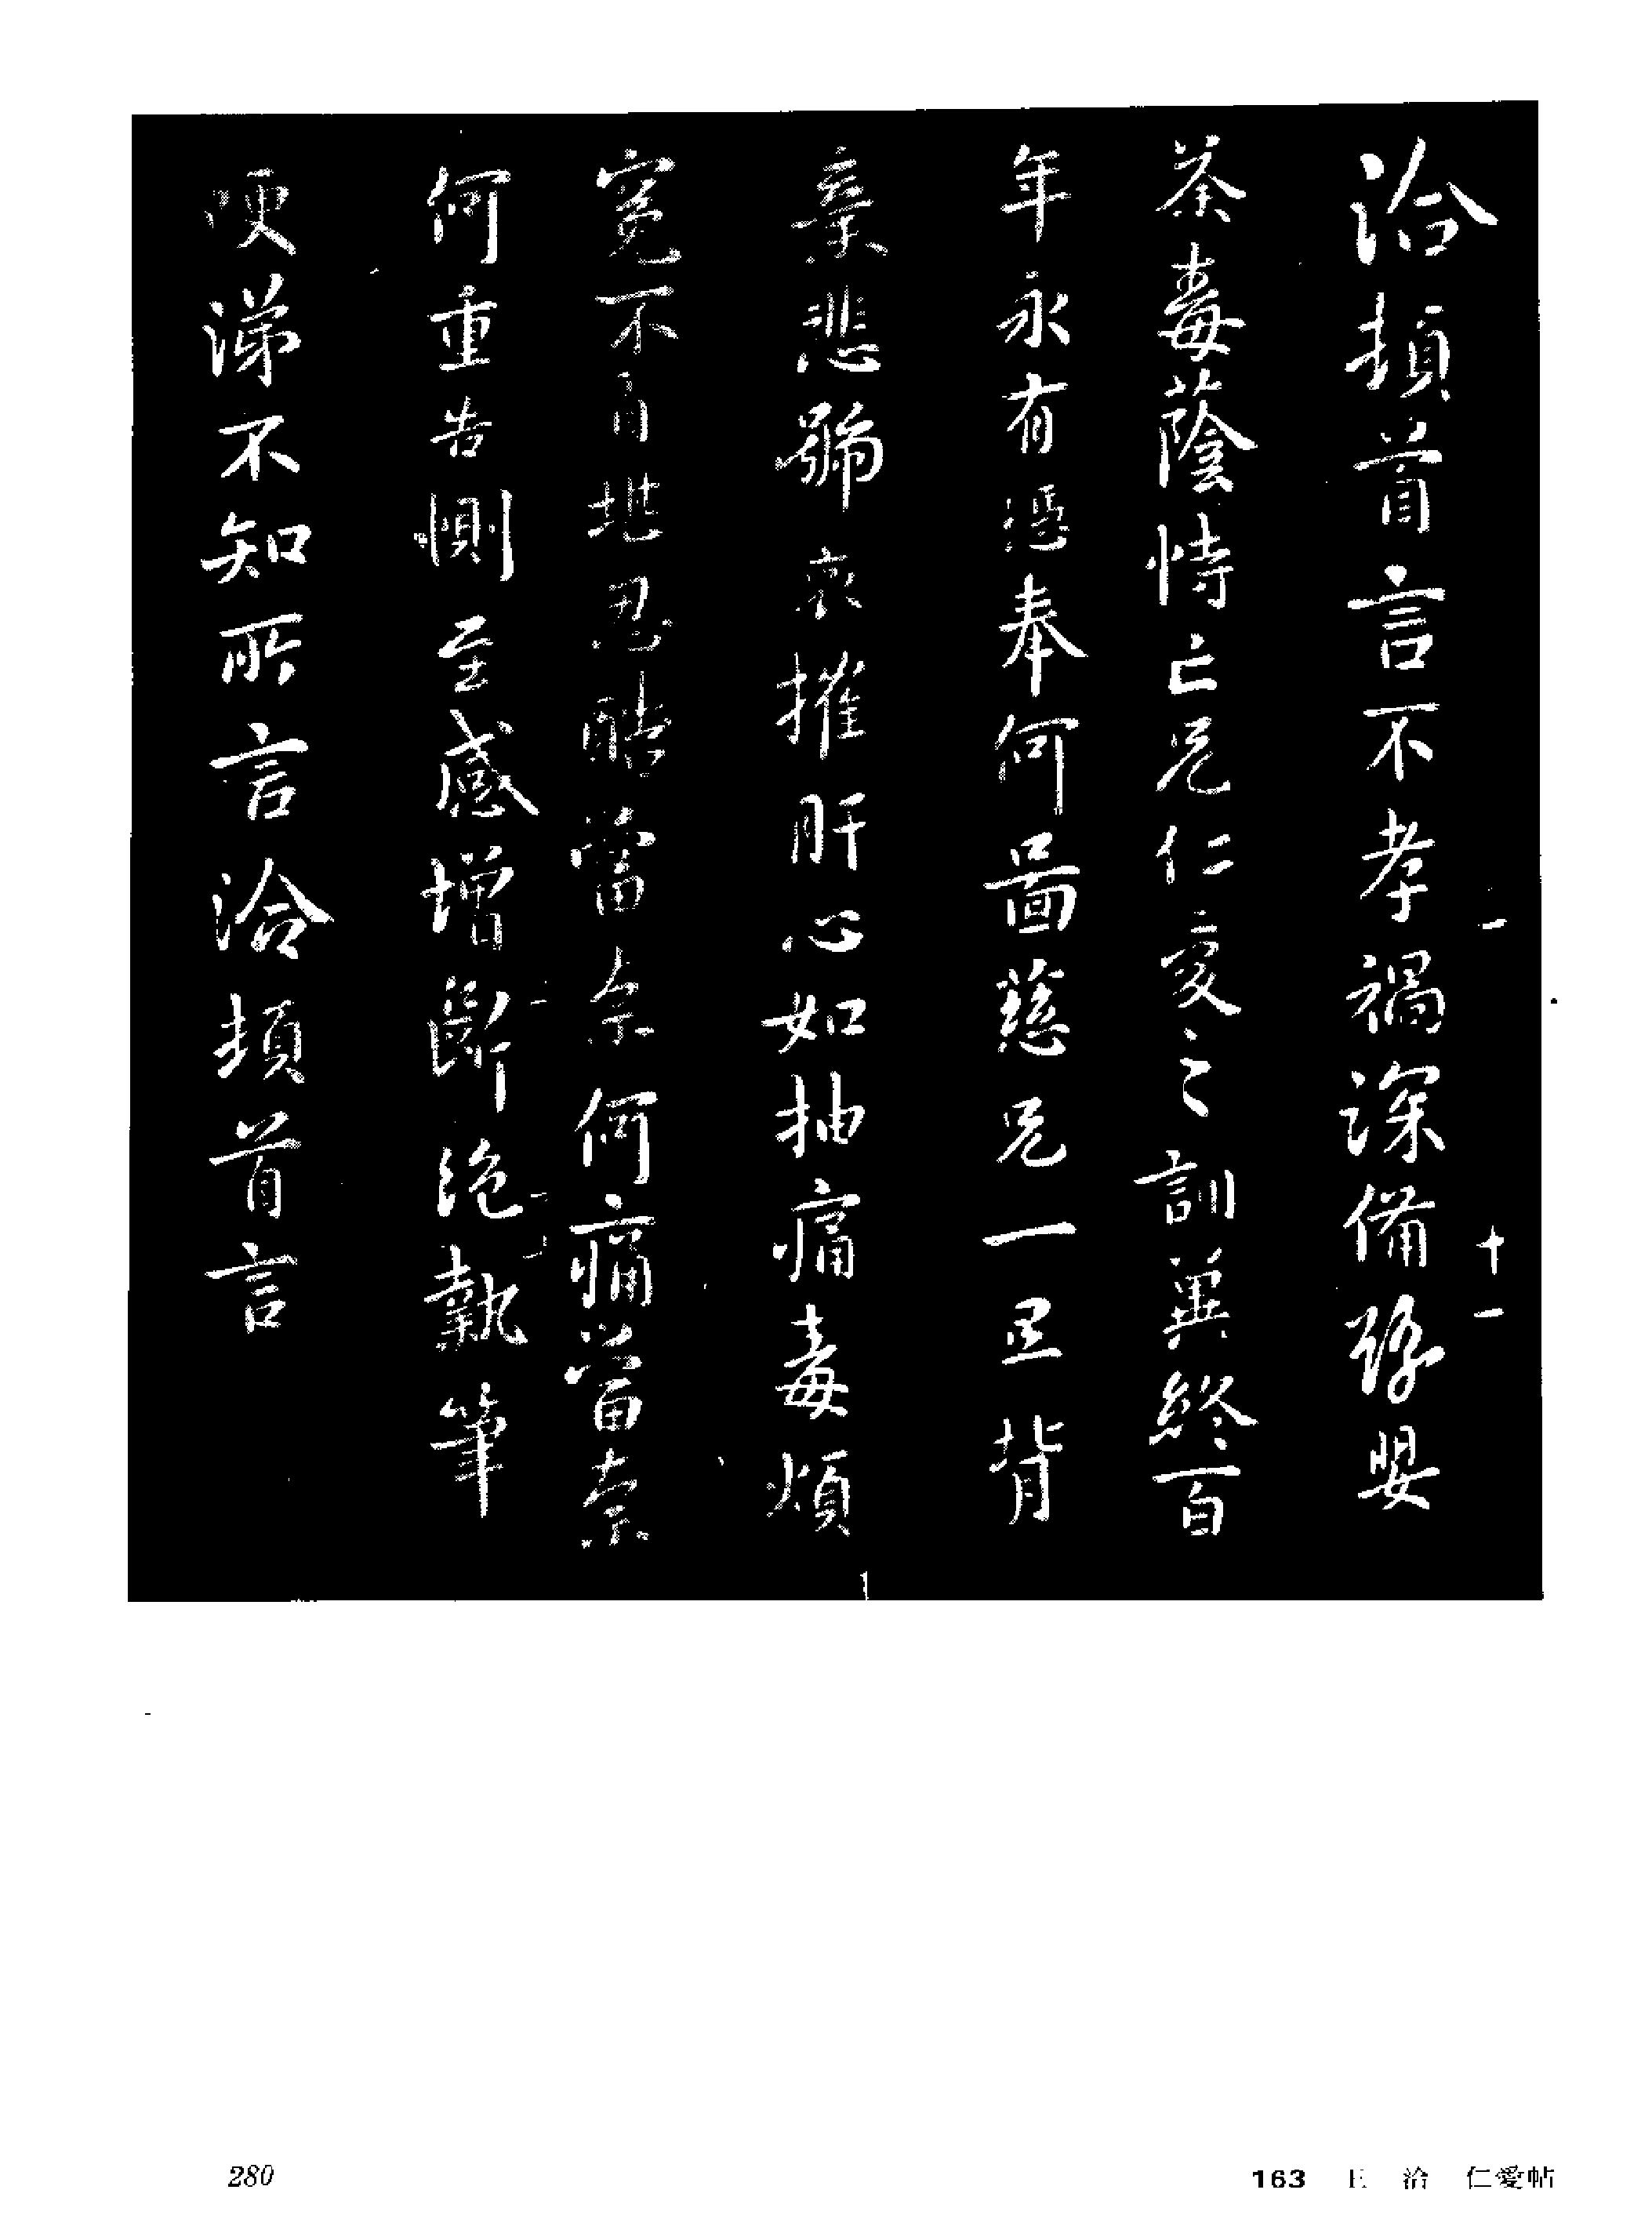 洽頓首言不孝禍深備豫嬰
荼毒蔭恃亡兄仁愛之訓冀終百
年永有憑奉何啚慈兄一旦背
棄悲號哀摧肝心如抽痛毒煩
冤不自堪忍酷當奈何痛當奈
何重告惻至感增斷絕執筆
哽涕不知所言洽頓首言
一
十一
280
163 王 洽 仁愛帖